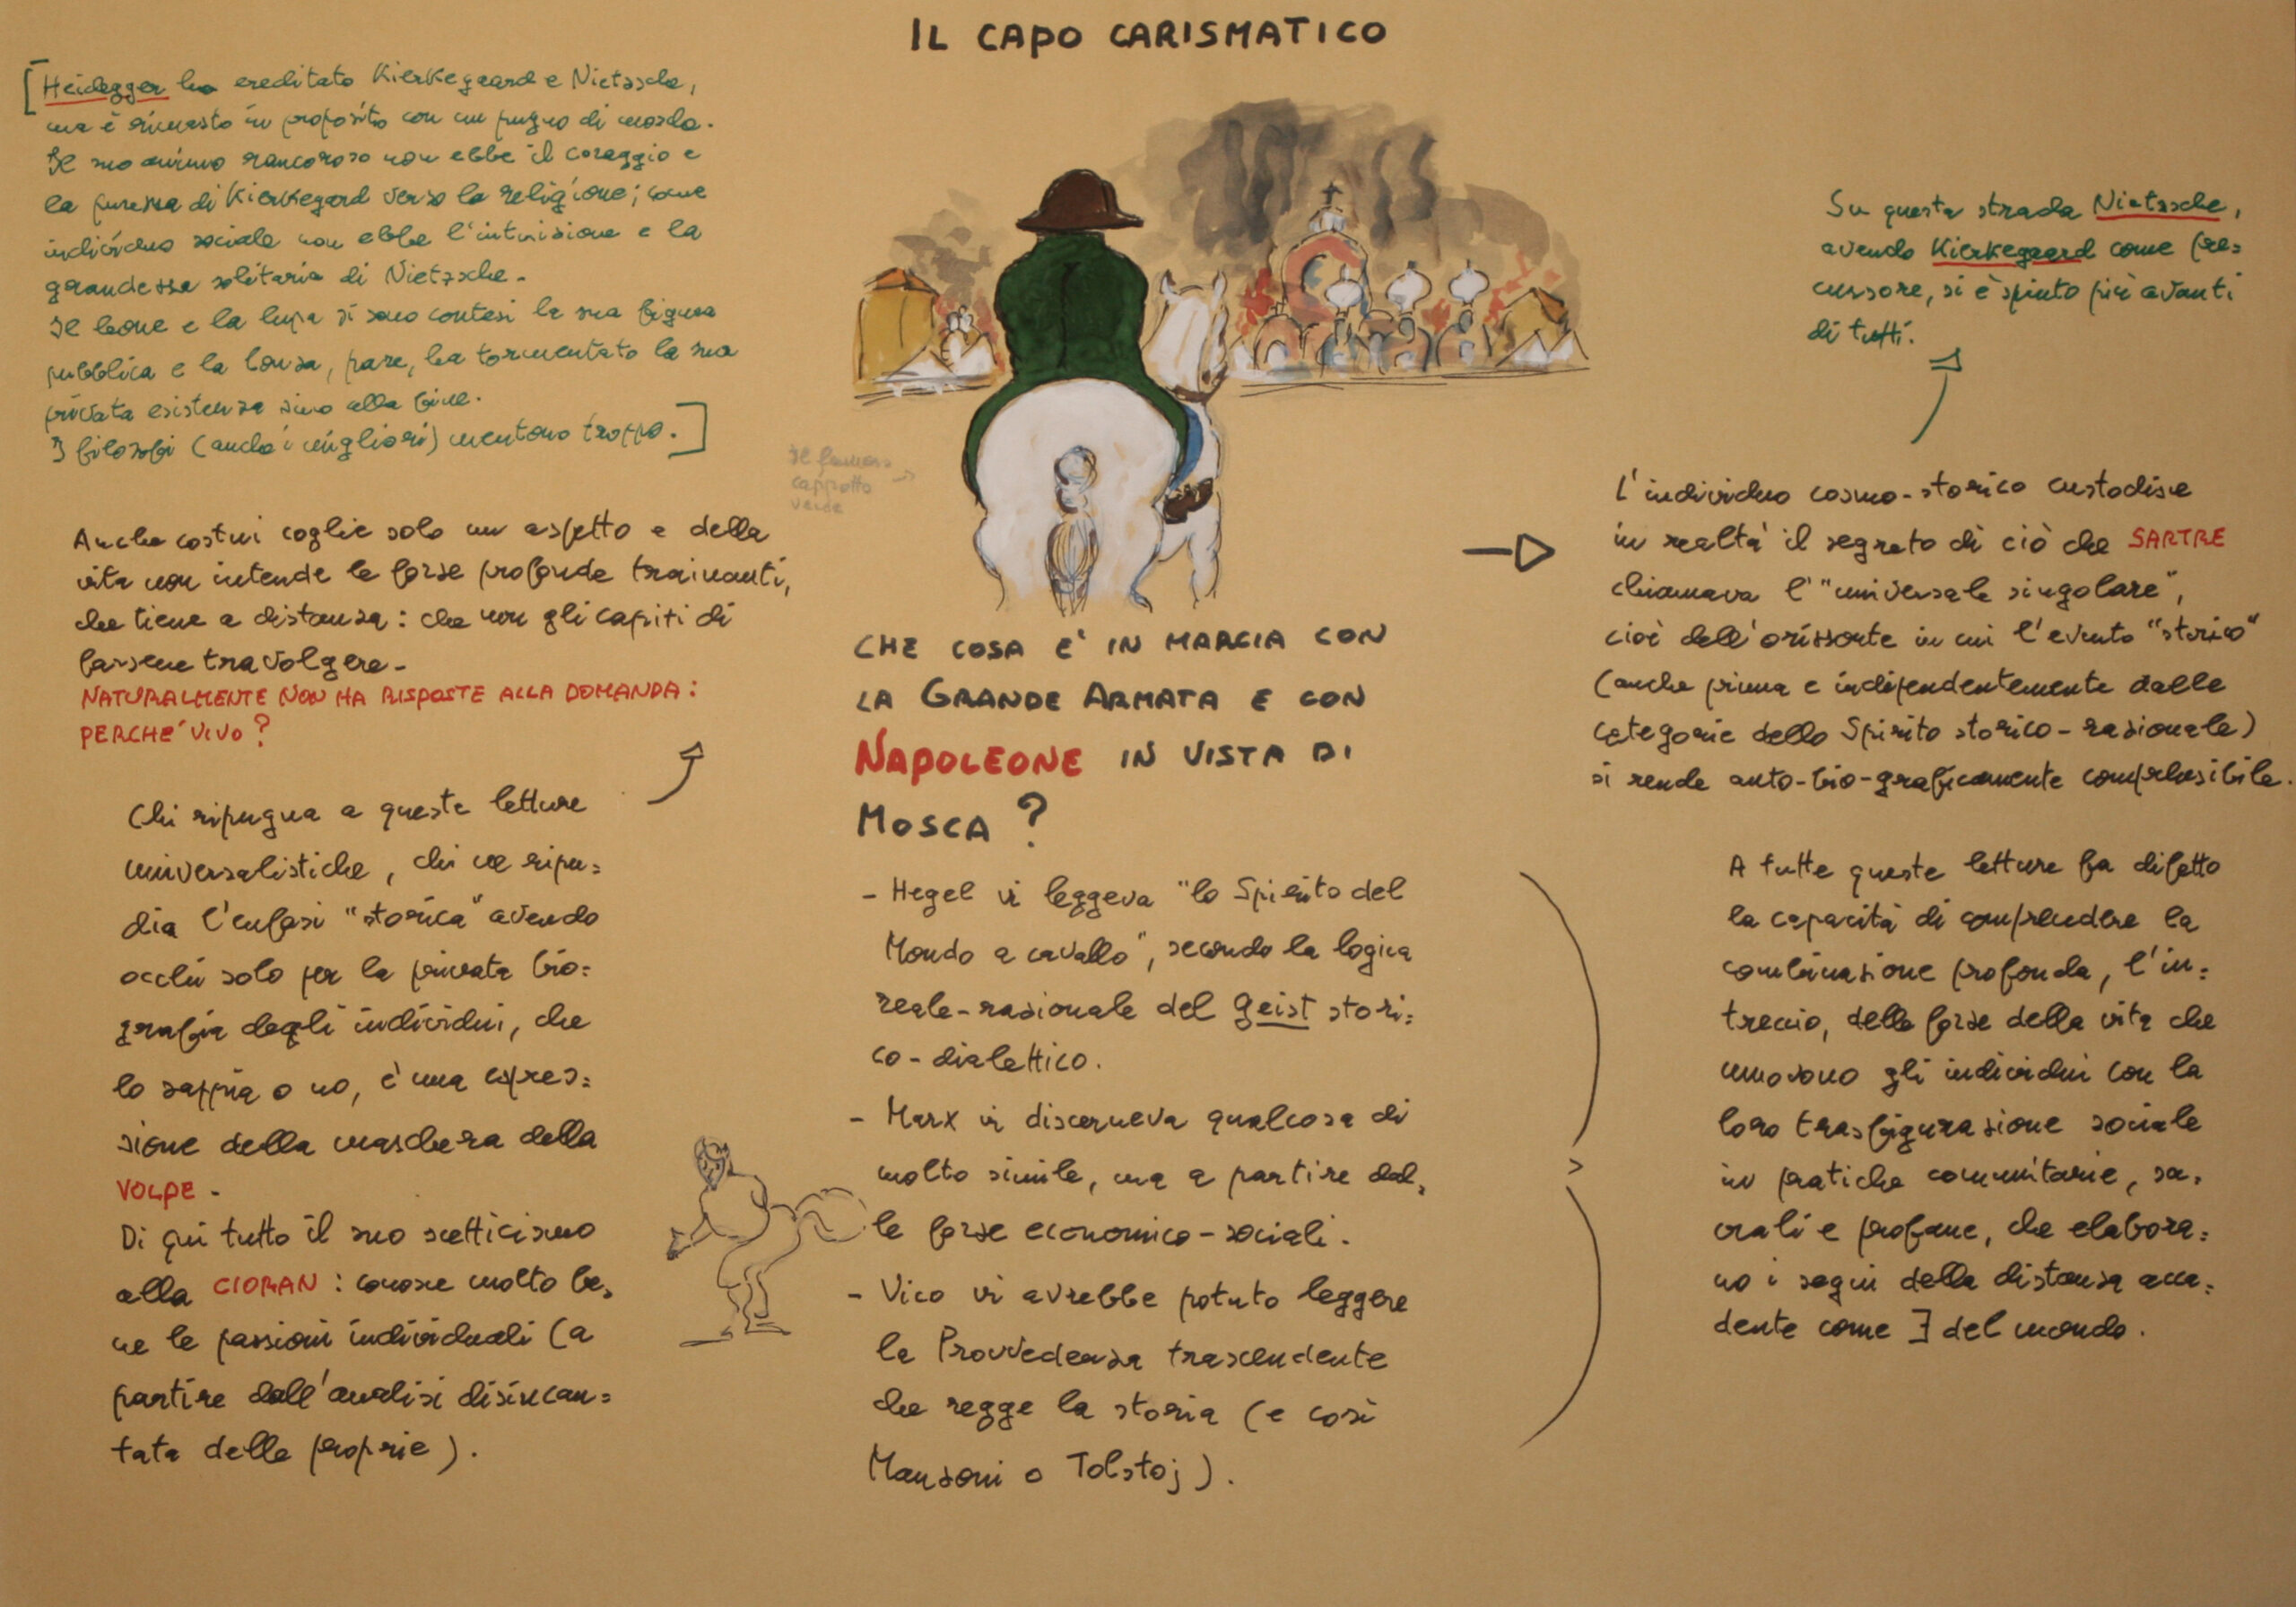 IL CAPO CARISMATICO
[Heidegger ha ereditato Kierkegaard e Nietzsche,
ma è rimasto in proposito con un pugno di mosche.
Il suo animo rancoroso non ebbe il coraggio e
la purezza di Kierkegard verso la religione; come
individuo sociale non ebbe l'intuizione e la
grandezza solitaria di Nietzsche.
Il leone e la lupa si sono contesi la sua figura
pubblica e la lonza, pare, ha tormentato la sua
privata esistenza sino alla fine.
I filosofi (anche i migliori) mentono troppo.]
Anche costui coglie solo un aspetto e della
vita non intende le forze profonde trainanti,
che tiene a distanza: che non gli capiti di
farsene travolgere.
NATURALMENTE NON HA RISPOSTE ALLA DOMANDA:
PERCHE' VIVO?
Chi ripugna a queste letture
universalistiche, chi ne ripu=
dia l'enfasi "storica" avendo
occhi solo per la privata bio=
grafia degli individui, che
lo sappia o no, è una espres=
sione della maschera della
VOLPE.
Di qui tutto il suo scetticismo
alla CIORAN: conosce molto be=
ne le passioni individuali (a
partire dall'analisi disincan=
tata delle proprie).
Il famoso
cappotto
verde
CHE COSA E' IN MARCIA CON
LA GRANDE ARMATA E CON
NAPOLEONE IN VISTA DI
MOSCA?
- Hegel vi leggeva "lo Spirito del
Mondo a cavallo", secondo la logica
reale-razionale del Geist stori=
co-dialettico.
- Marx vi discerneva qualcosa di
molto simile, ma a partire dal=
le forze economico-sociali.
- Vico vi avrebbe potuto leggere
la Provvedenza trascendente
che regge la storia (e così
Manzoni o Tolstoj).
Su questa strada Nietzsche,
avendo Kierkegaard come pre=
cursore, si è spinto più avanti
di tutti.
L'individuo cosmo-storico custodisce
in realtà il segreto di ciò che SARTRE
chiamava l'"universale singolare",
cioè dell'orizzonte in cui l'evento "storico"
(anche prima e indipendentemente dalle
categorie dello Spirito storico-razionale)
si rende auto-bio-graficamente comprensibile.
A tutte queste letture fa difetto
la capacità di comprendere la
combinazione profonda, l'in=
treccio, delle forze della vita che
muovono gli individui con la
loro trasfigurazione sociale
in pratiche comunitarie, sa=
crali e profane, che elabora=
no i segni della distanza acca=
dente come ∃ del mondo.